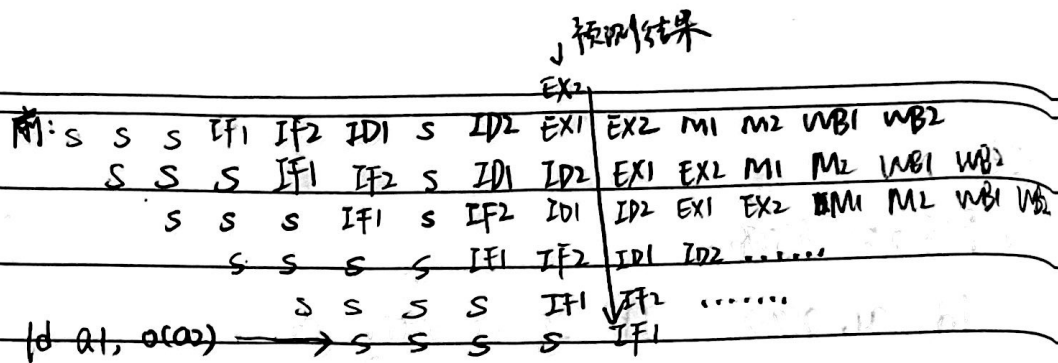 ↓预测结果
EX2
前: S S S IF1 IF2 ID1 S ID2 EX1 EX2 M1 M2 WB1 WB2
S S S IF1 IF2 S ID1 ID2 EX1 EX2 M1 M2 WB1 WB2
S S S IF1 S IF2 ID1 ID2 EX1 EX2 M1 M2 WB1 WB2
S S S S IF1 IF2 ID1 ID2 ......
S S S S IF1 IF2 .......
ld a1, 0(a2) → S S S S IF1